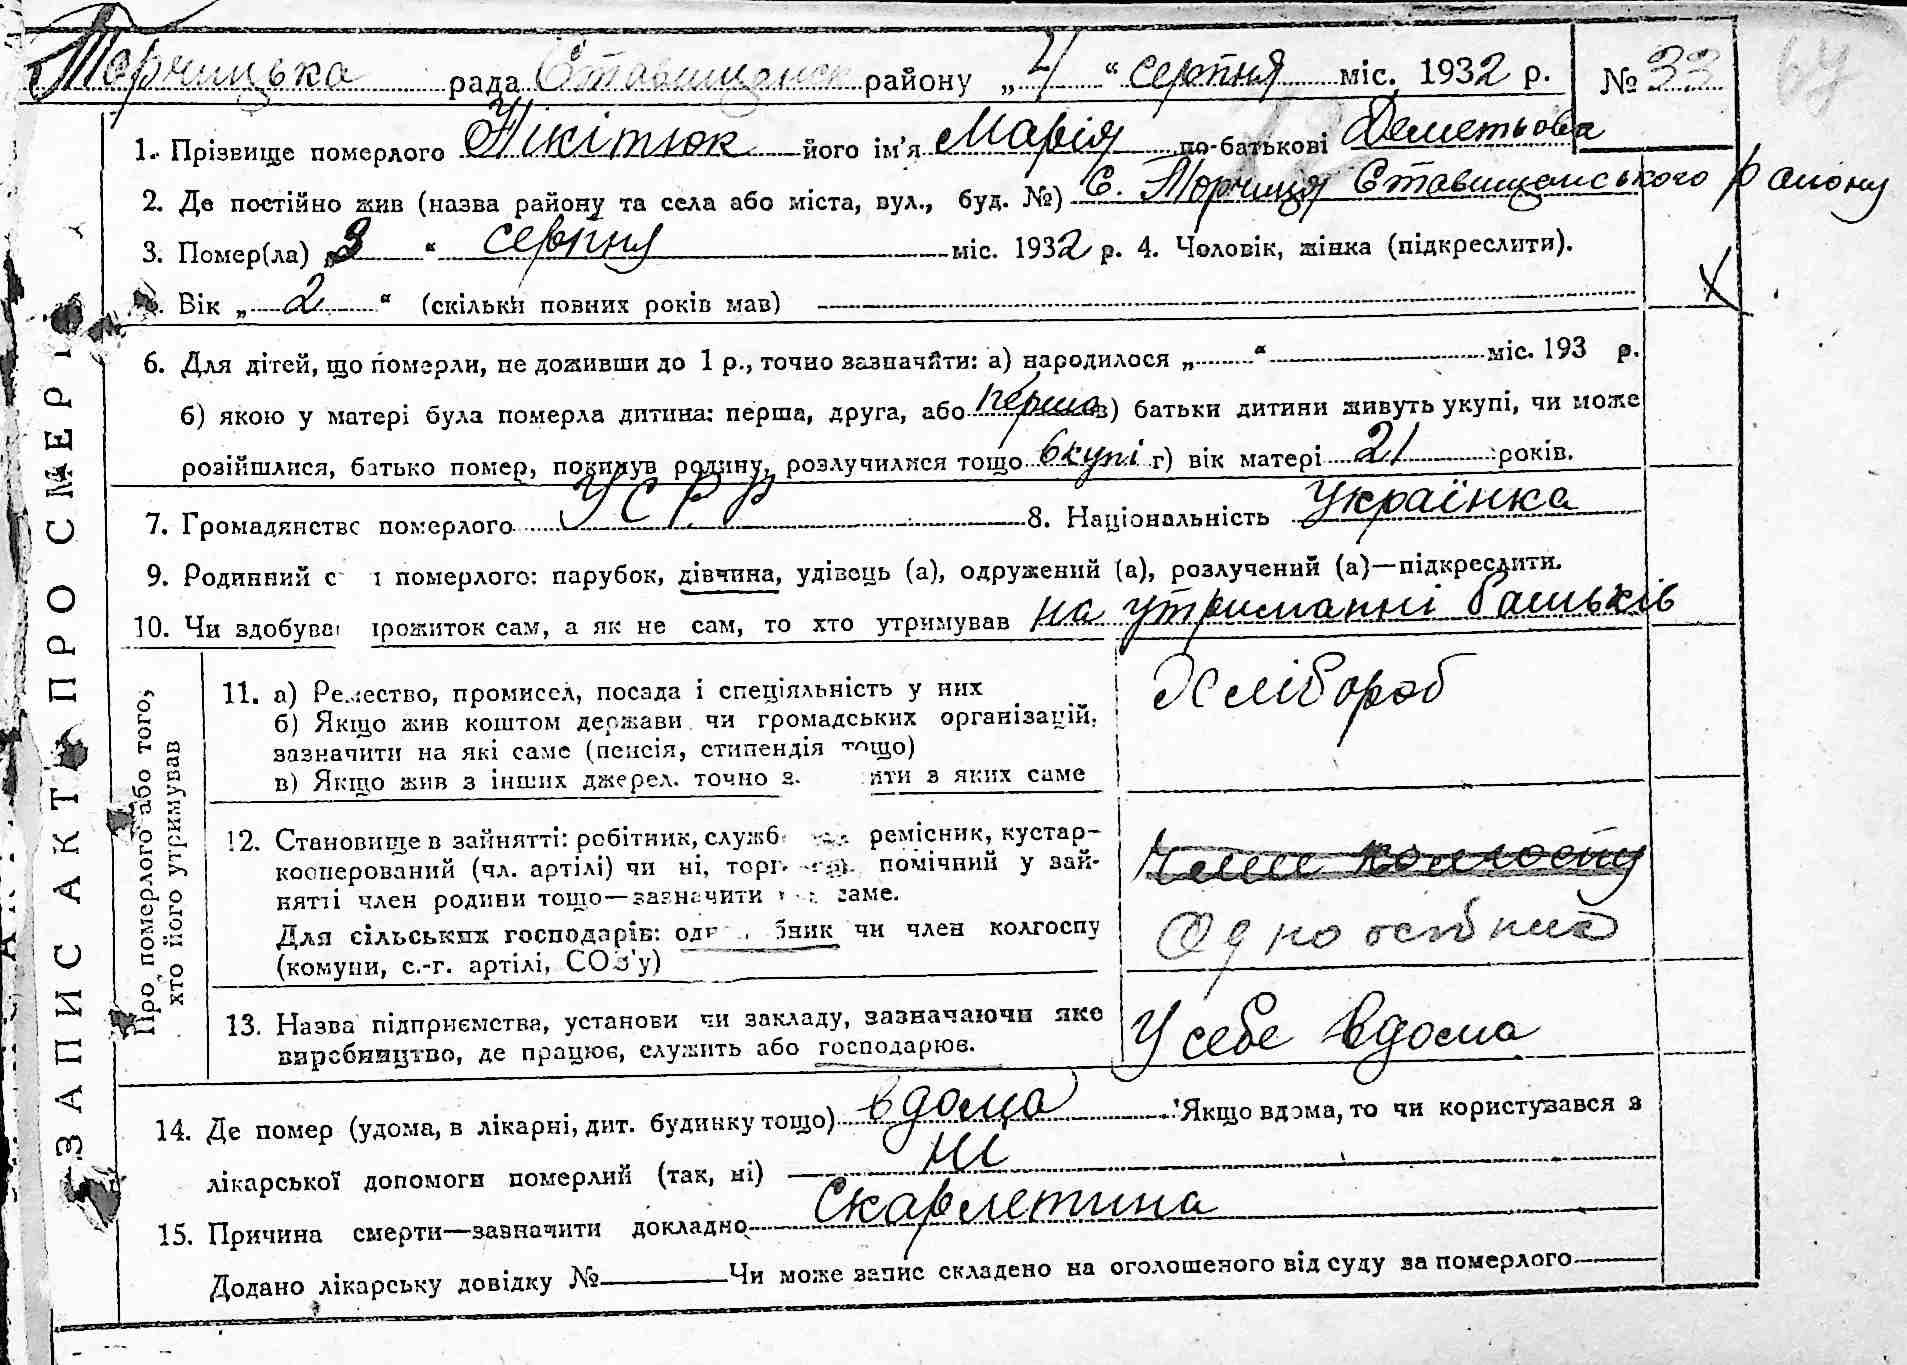 Торчицька рада Ставищанськ району „ 4 “ серпня міс. 1932 р. № 33
64
1. Прізвище померлого Нікітюк його ім'я Марія по-батькові Деметьова
2. Де постійно жив (назва району та села або міста, вул., буд. №) С. Торчиця Ставищанського району
3. Помер(ла) „ 3 “ серпня міс. 1932 р. 4. Чоловік, жінка (підкреслити).
Вік „ 2 “ (скільки повних років мав)
6. Для дітей, що померли, не доживши до 1 р., точно зазначити: а) народилося „ “ міс. 193 р.
б) якою у матері була померла дитина: перша, друга, або перша в) батьки дитини живуть укупі, чи може
розійшлися, батько помер, покинув родину, розлучилися тощо вкупі г) вік матері 21 років.
7. Громадянство померлого УСРР 8. Національність Українка
9. Родинний с і померлого: парубок, дівчина, удівець (а), одружений (а), розлучений (а)—підкреслити.
10. Чи здобува прожиток сам, а як не сам, то хто утримував на утриманні батьків
ЗАПИС АКТА ПРО СМЕРТ
Про померлого або того,
хто його утримував
11. а) Ремество, промисел, посада і спеціяльність у них Хлібороб
б) Якщо жив коштом держави чи громадських організацій,
зазначити на які саме (пенсія, стипендія тощо)
в) Якщо жив з інших джерел, точно з ити з яких саме
12. Становище в зайнятті: робітник, служб ремісник, кустар-
кооперований (чл. артілі) чи ні, торг помічний у зай-
нятті член родини тощо—зазначити саме.
Для сільських господарів: од бник чи член колгоспу
(комуни, с.-г. артілі, СОЗ'у)
Одноосібник
13. Назва підприємства, установи чи закладу, зазначаючи яке
виробництво, де працює, служить або господарює.
У себе вдома
14. Де помер (удома, в лікарні, дит. будинку тощо) вдома Якщо вдома, то чи користувався з
лікарської допомоги померлий (так, ні) ні
15. Причина смерти—зазначити докладно Скарлетина
Додано лікарську довідку № Чи може запис складено на оголошеного від суду за померлого